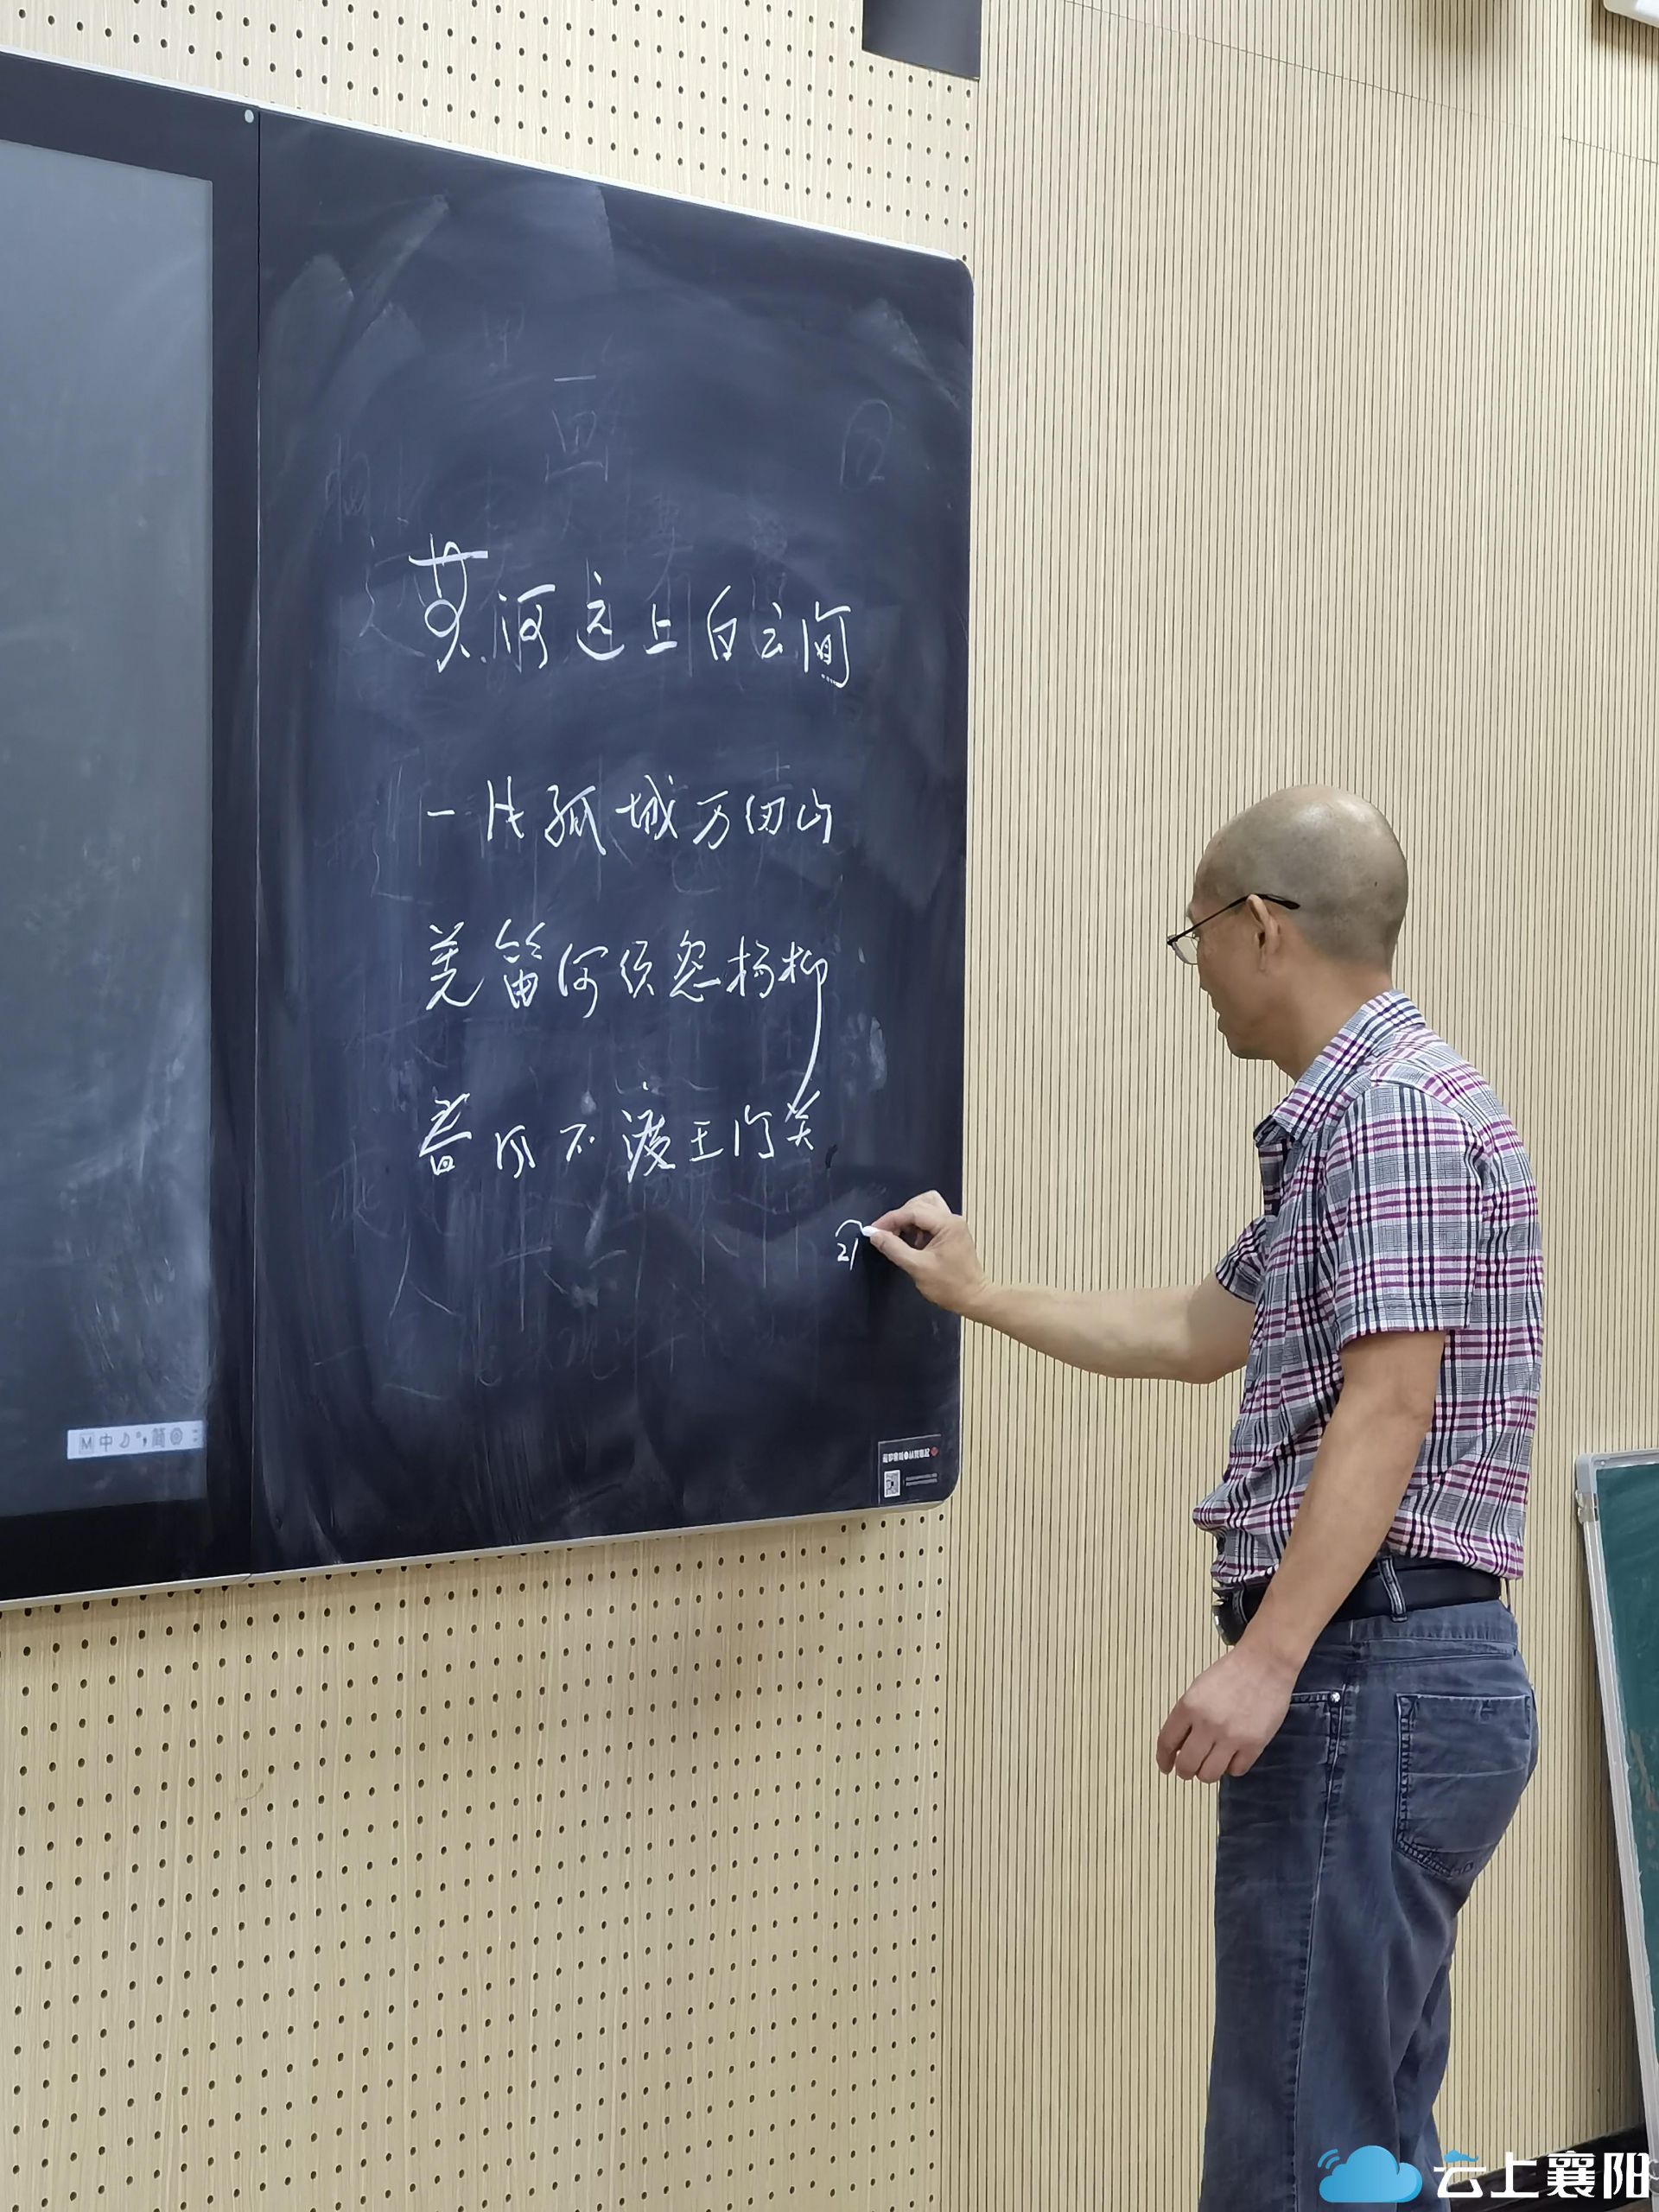 黄河远上白云间
一片孤城万仞山
羌笛何须忽杨柳
春风不渡玉门关
21
M 中 简
云上襄阳